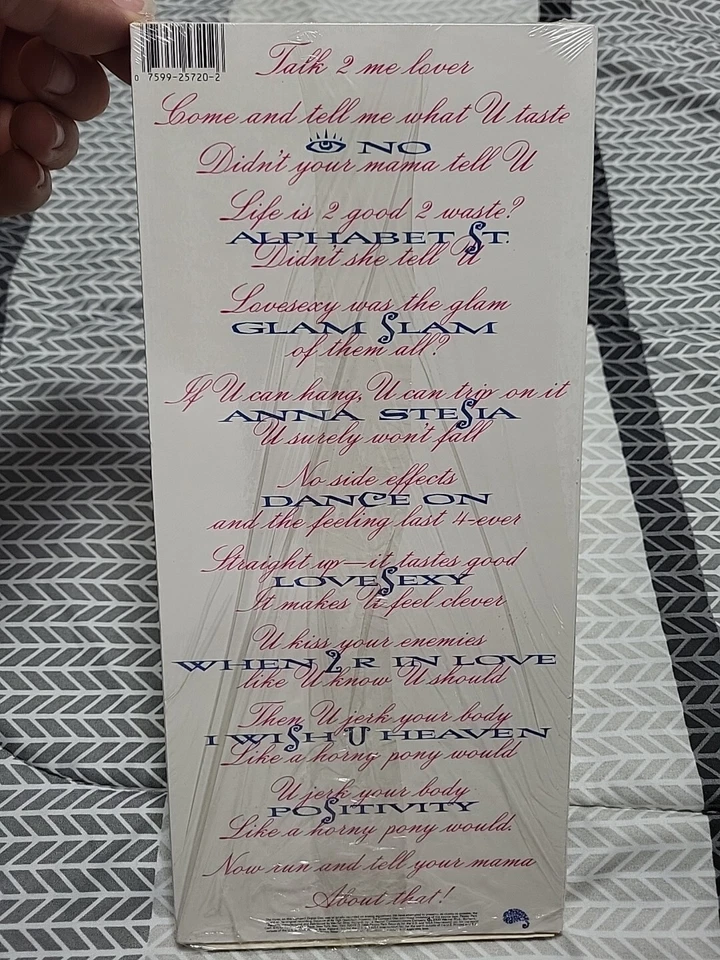 0 7599-25720-2
Talk 2 me lover
Come and tell me what U taste
NO
Didn't your mama tell U
Life is 2 good 2 waste?
ALPHABET ST.
Didn't she tell U
Lovesexy was the glam
GLAM SLAM
of them all?
If U can hang, U can trip on it
ANNA STESIA
U surely won't fall
No side effects
DANCE ON
and the feeling last 4-ever
Straight up—it tastes good
LOVESEXY
It makes U feel clever
U kiss your enemies
WHEN 2 R IN LOVE
like U know U should
Then U jerk your body
I WISH U HEAVEN
Like a horny pony would
U jerk your body
POSITIVITY
Like a horny pony would.
Now run and tell your mama
About that!